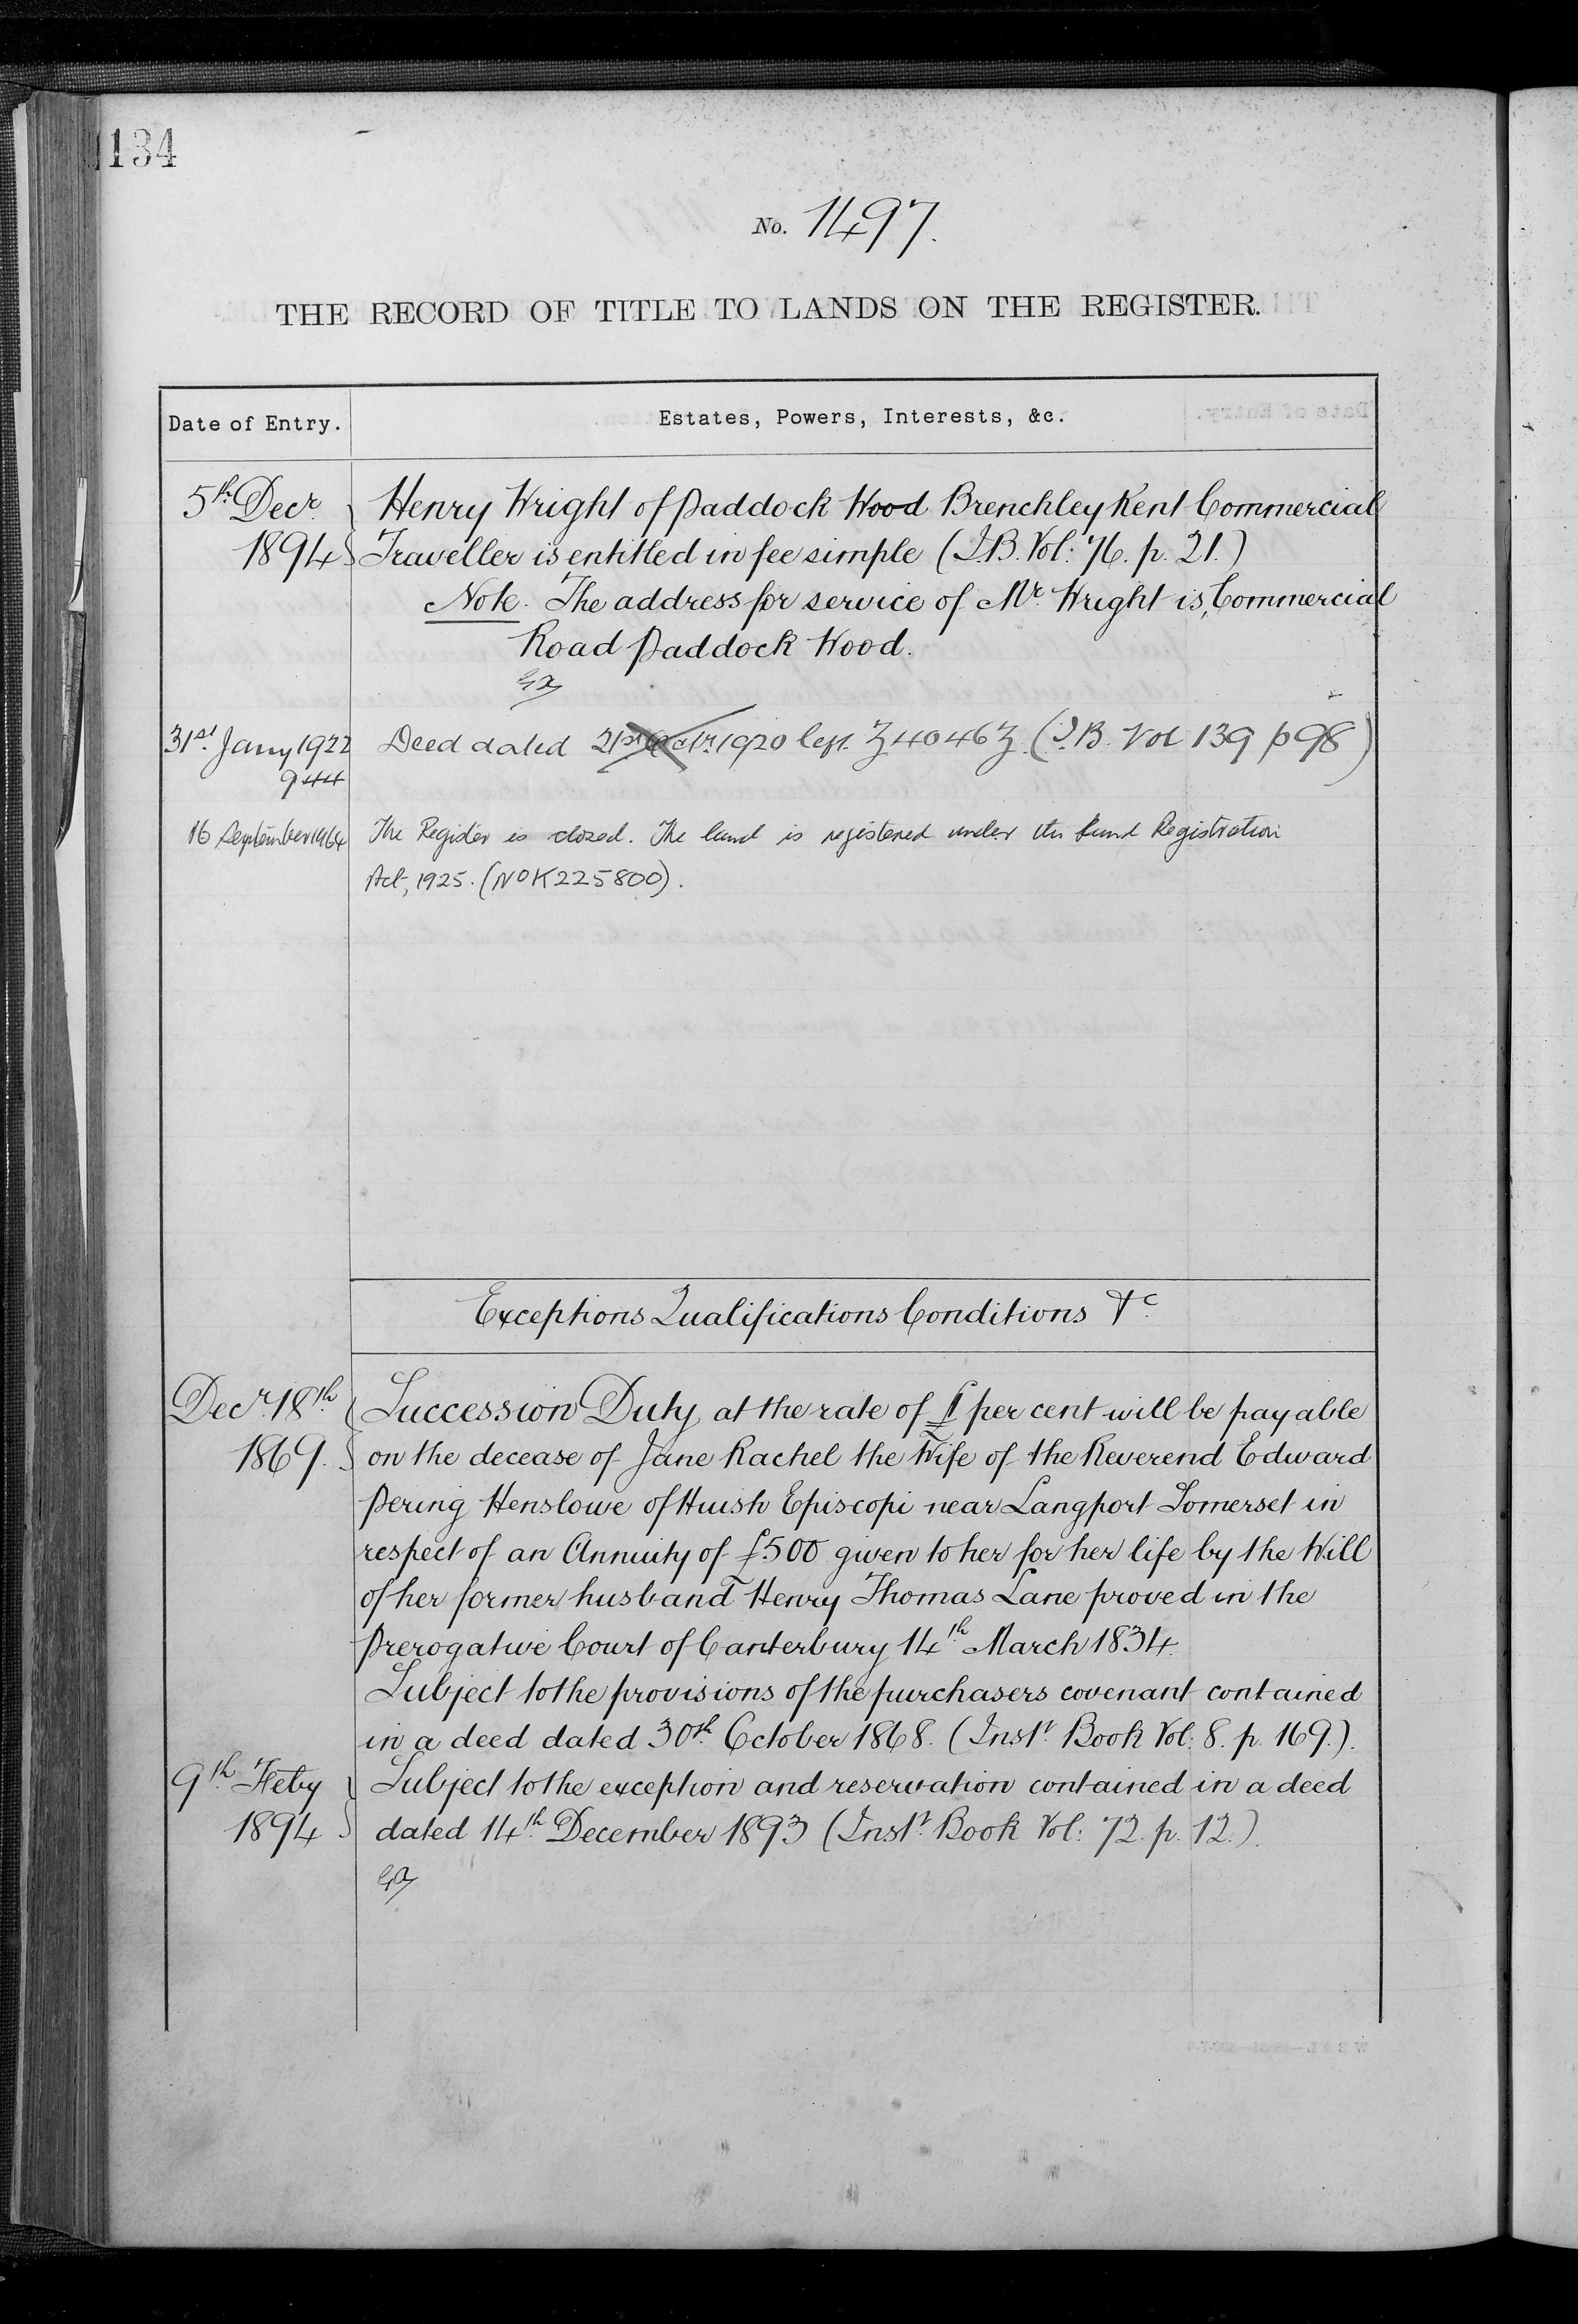 134
No. 1497.
THE RECORD OF TITLE TO LANDS ON THE REGISTER.
Date of Entry.
Estates, Powers, Interests, &c.
5th Decr. 1894
Henry Wright of Paddock Wood Brenchley Kent Commercial
Traveller is entitled in fee simple (I.B. Vol: 76. p. 21.)
Note. The address for service of Mr. Wright is, Commercial
Road Paddock Wood.
31st. Jany 1922
944
Deed dated 21st Octr. 1920 (I.B. Vol 139 p 98)
16 September 1964
The Register is closed. The land is registered under the Land Registration
Act, 1925. (No K225800).
Exceptions Qualifications Conditions &c.
Decr. 18th. 1869.
Succession Duty at the rate of £1 per cent will be payable
on the decease of Jane Rachel the Wife of the Reverend Edward
Pering Henslowe of Huish Episcopi near Langport Somerset in
respect of an Annuity of £500 given to her for her life by the Will
of her former husband Henry Thomas Lane proved in the
Prerogative Court of Canterbury 14th March 1834.
Subject to the provisions of the purchasers covenant contained
in a deed dated 30th. October 1868. (Instt. Book Vol: 8. p. 169.).
9th. Feby 1894
Subject to the exception and reservation contained in a deed
dated 14th. December 1893 (Instt. Book Vol: 72. p. 12.).